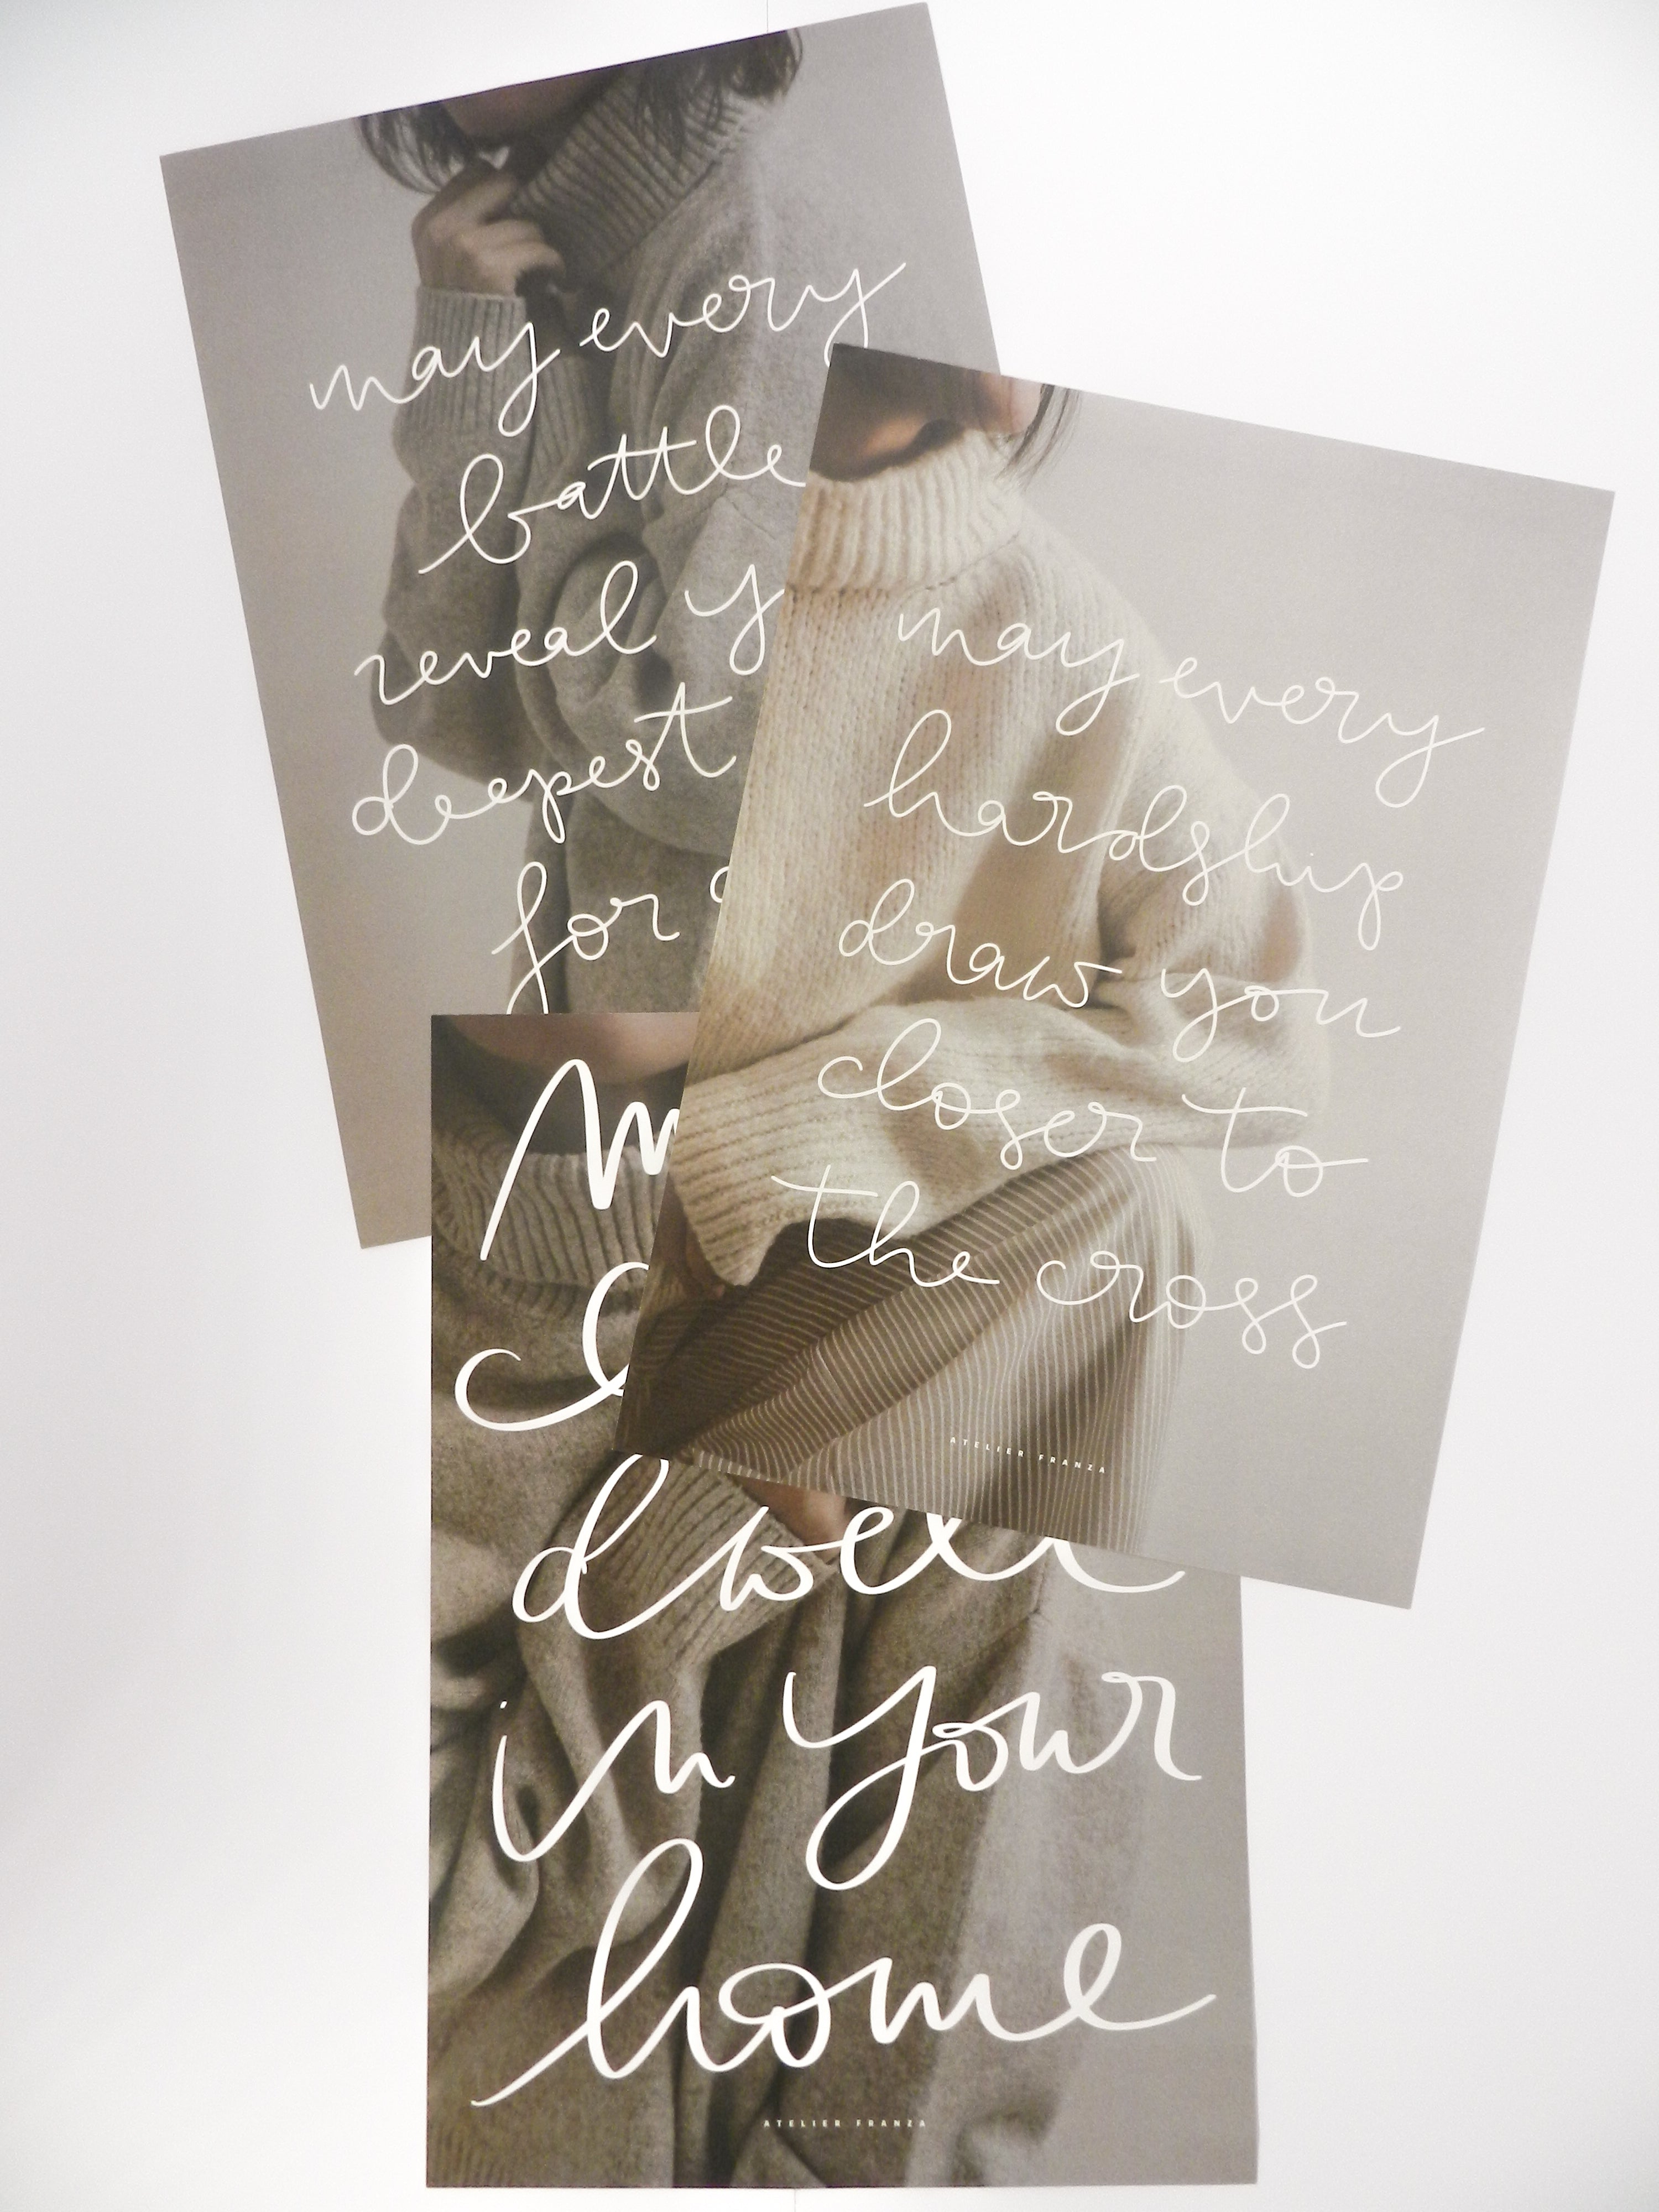 may every
battle
reveal y
deepest
for
may every
hardship
draw you
closer to
the cross
ATELIER FRANZA
dwell
in your
home
ATELIER FRANZA